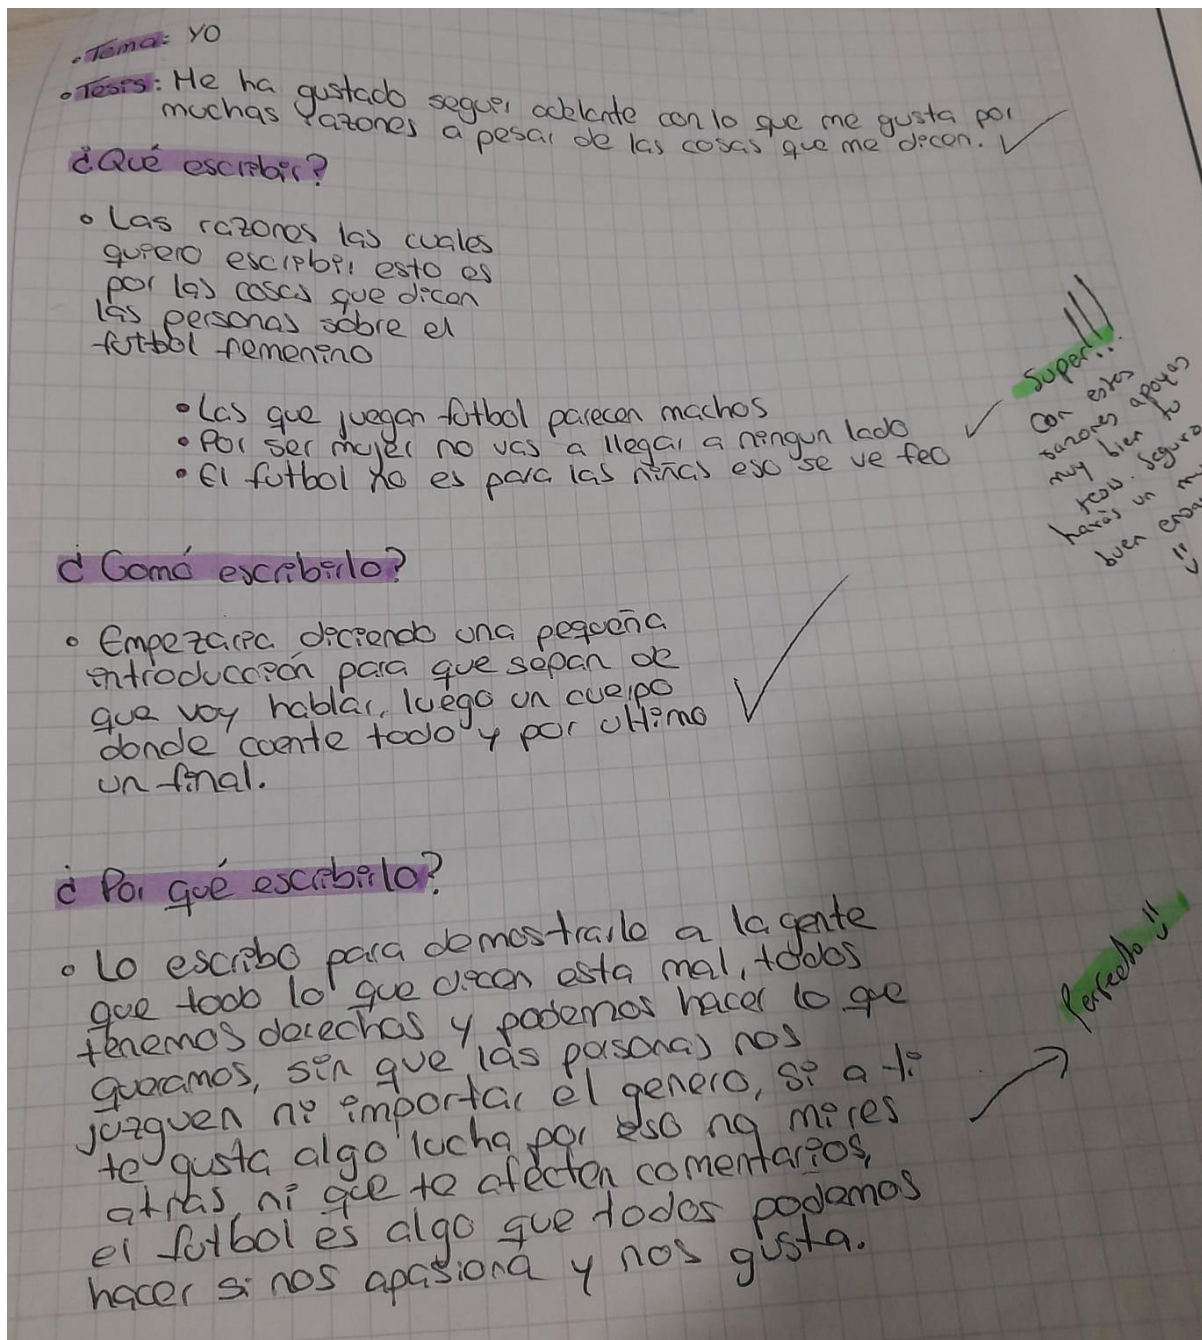 • Tema: YO
• Tesis: He ha gustado seguir adelante con lo que me gusta por
muchas razones a pesar de las cosas que me dicen.
¿Qué escribir?
• Las razones las cuales
quiero escribir esto es
por las cosas que dicen
las personas sobre el
futbol femenino
• Las que juegan futbol parecen machos
• Por ser mujer no vas a llegar a ningun lado
• El futbol no es para las niñas eso se ve feo
Super!!!
Con estas
razones apoyas
muy bien tu
tesis. Seguro
harás un
buen
¿Comó escribirlo?
• Empezaria diciendo una pequeña
introducción para que sepan de
que voy hablar, luego un cuerpo
donde cuente todo y por ultimo
un final.
¿Por qué escribirlo?
• Lo escribo para demostrarle a la gente
que todo lo que dicen esta mal, todos
tenemos derechos y podemos hacer lo que
queramos, sin que las personas nos
juzguen ni importar el genero, si a ti
te gusta algo lucha por eso no mires
atras, ni que te afecten comentarios,
el futbol es algo que todos podemos
hacer si nos apasiona y nos gusta.
Perfecto